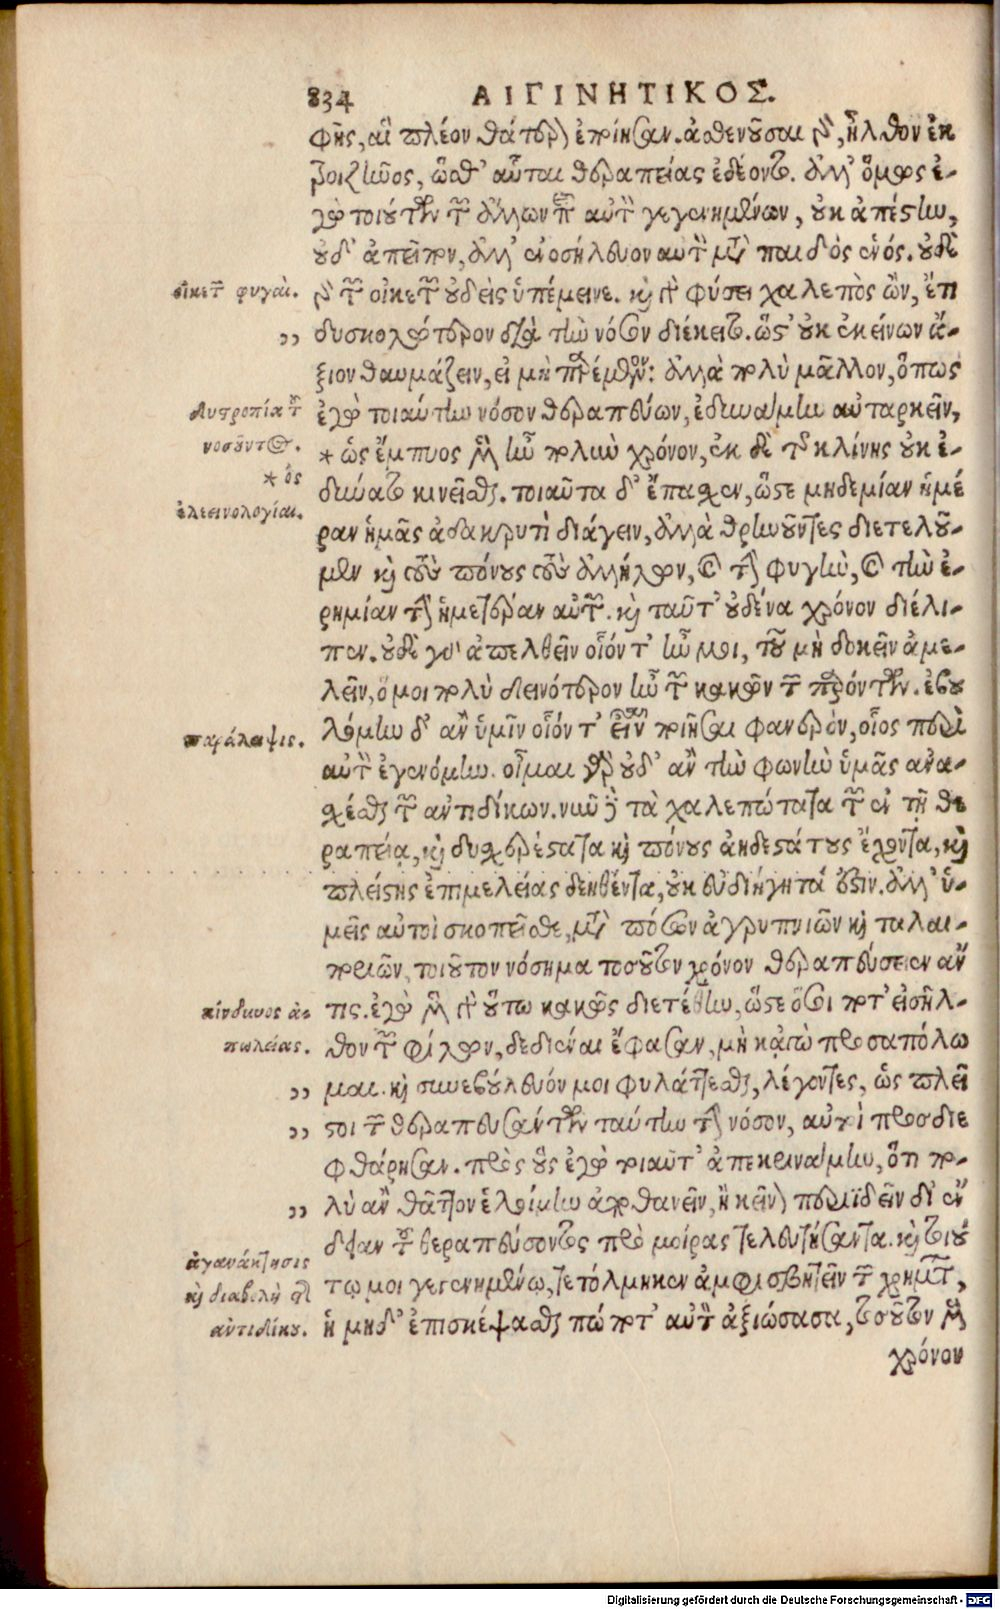 834 ΑΙΓΙΝΗΤΙΚΟΣ.
φῆς, αἳ πλέον θάτερον ἐποίησαν. ἀσθενοῦσαι γὰρ, ἦλθον ἐκ
Τροιζῆνος, ὥσθ' αὗται θεραπείας ἐδέοντο. ἀλλ' ὅμως ἐ-
γὼ τοιούτων τῶν ἄλλων περὶ αὐτὸν γεγενημένων, οὐκ ἀπέστην,
οὐδ' ἀπεῖπον, ἀλλ' ἐνοσήλευον αὐτὸν μετὰ παιδὸς ἑνός. οὐδὲ
οἰκετῶν φυγαί.
γὰρ τῶν οἰκετῶν οὐδεὶς ὑπέμεινε. καὶ γὰρ φύσει χαλεπὸς ὢν, ἔτι
,, δυσκολώτερον διὰ τὴν νόσον διέκειτο. ὥστ' οὐκ ἐκείνων ἄ-
ξιον θαυμάζειν, εἰ μὴ παρέμενον: ἀλλὰ πολὺ μᾶλλον, ὅπως
δυστροπία τοῦ
ἐγὼ τοιαύτην νόσον θεραπεύων, ἐδυνάμην αὐταρκεῖν,
νοσοῦντος.
* ὡς ἔμπυος μὲν ἦν πολὺν χρόνον, ἐκ δὲ τῆς κλίνης οὐκ ἐ-
* ὃς
δύνατο κινεῖσθαι. τοιαῦτα δ' ἔπασχεν, ὥστε μηδεμίαν ἡμέ
ἐλεεινολογίαι.
ραν ἡμᾶς ἀδακρυτὶ διάγειν, ἀλλὰ θρηνοῦντες διετελοῦ-
μεν καὶ τοὺς πόνους τοὺς ἀλλήλων, καὶ τὴν φυγὴν, καὶ τὴν ἐ-
ρημίαν τὴν ἡμετέραν αὐτῶν. καὶ ταῦτ' οὐδένα χρόνον διέλι-
πεν. οὐδὲ γὰρ ἀπελθεῖν οἷόν τ' ἦν μοι, τοῦ μὴ δοκεῖν ἀμε-
λεῖν, ὅ μοι πολὺ δεινότερον ἦν τῶν κακῶν τῶν παρόντων. ἐβου
παράλειψις.
λόμην δ' ἂν ὑμῖν οἷόν τ' εἶναι ποιῆσαι φανερὸν, οἷος περὶ
αὐτὸν ἐγενόμην. οἶμαι γὰρ οὐδ' ἂν τὴν φωνὴν ὑμᾶς ἀνα-
σχέσθαι τῶν ἀντιδίκων. νῦν δὲ τὰ χαλεπώτατα τῶν ἐν τῇ θε
ραπείᾳ, καὶ δυσχερέστατα καὶ πόνους ἀηδεστάτους ἔχοντα, καὶ
πλείστης ἐπιμελείας δεηθέντα, οὐκ εὐδιήγητά ἐστιν. ἀλλ' ὑ-
μεῖς αὐτοὶ σκοπεῖσθε, μετὰ πόσων ἀγρυπνιῶν καὶ ταλαι-
πωριῶν, τοιοῦτον νόσημα τοσοῦτον χρόνον θεραπεύσειεν ἄν
κίνδυνος ἀ-
τις. ἐγὼ μὲν γὰρ οὕτω κακῶς διετέθην, ὥστε ὅσοι ποτ' εἰσῆλ-
πωλείας.
θον τῶν φίλων, δεδιέναι ἔφασαν, μὴ κἀγὼ προσαπόλω
,, μαι. καὶ συνεβούλευόν μοι φυλάττεσθαι, λέγοντες, ὡς πλεῖ
,, στοι τῶν θεραπευσάντων ταύτην τὴν νόσον, αὐτοὶ προσδιε
φθάρησαν. πρὸς οὓς ἐγὼ τοιαῦτ' ἀπεκρινάμην, ὅτι πο-
,, λὺ ἂν θᾶττον ἑλοίμην ἀποθανεῖν, ἢ κεῖνον περιϊδεῖν δι' ἔν
δειαν τοῦ θεραπεύσοντος πρὸ μοίρας τελευτήσαντα. καὶ τοιού
ἀγανάκτησις
τῳ μοι γεγενημένῳ, τετόλμηκεν ἀμφισβητεῖν τῶν χρημάτων,
καὶ διαβολὴ τοῦ
ἀντιδίκου.
ἡ μηδ' ἐπισκέψασθαι πώποτ' αὐτὸν ἀξιώσασα, τοσοῦτον μὲν
χρόνον
Digitalisierung gefördert durch die Deutsche Forschungsgemeinschaft - DFG